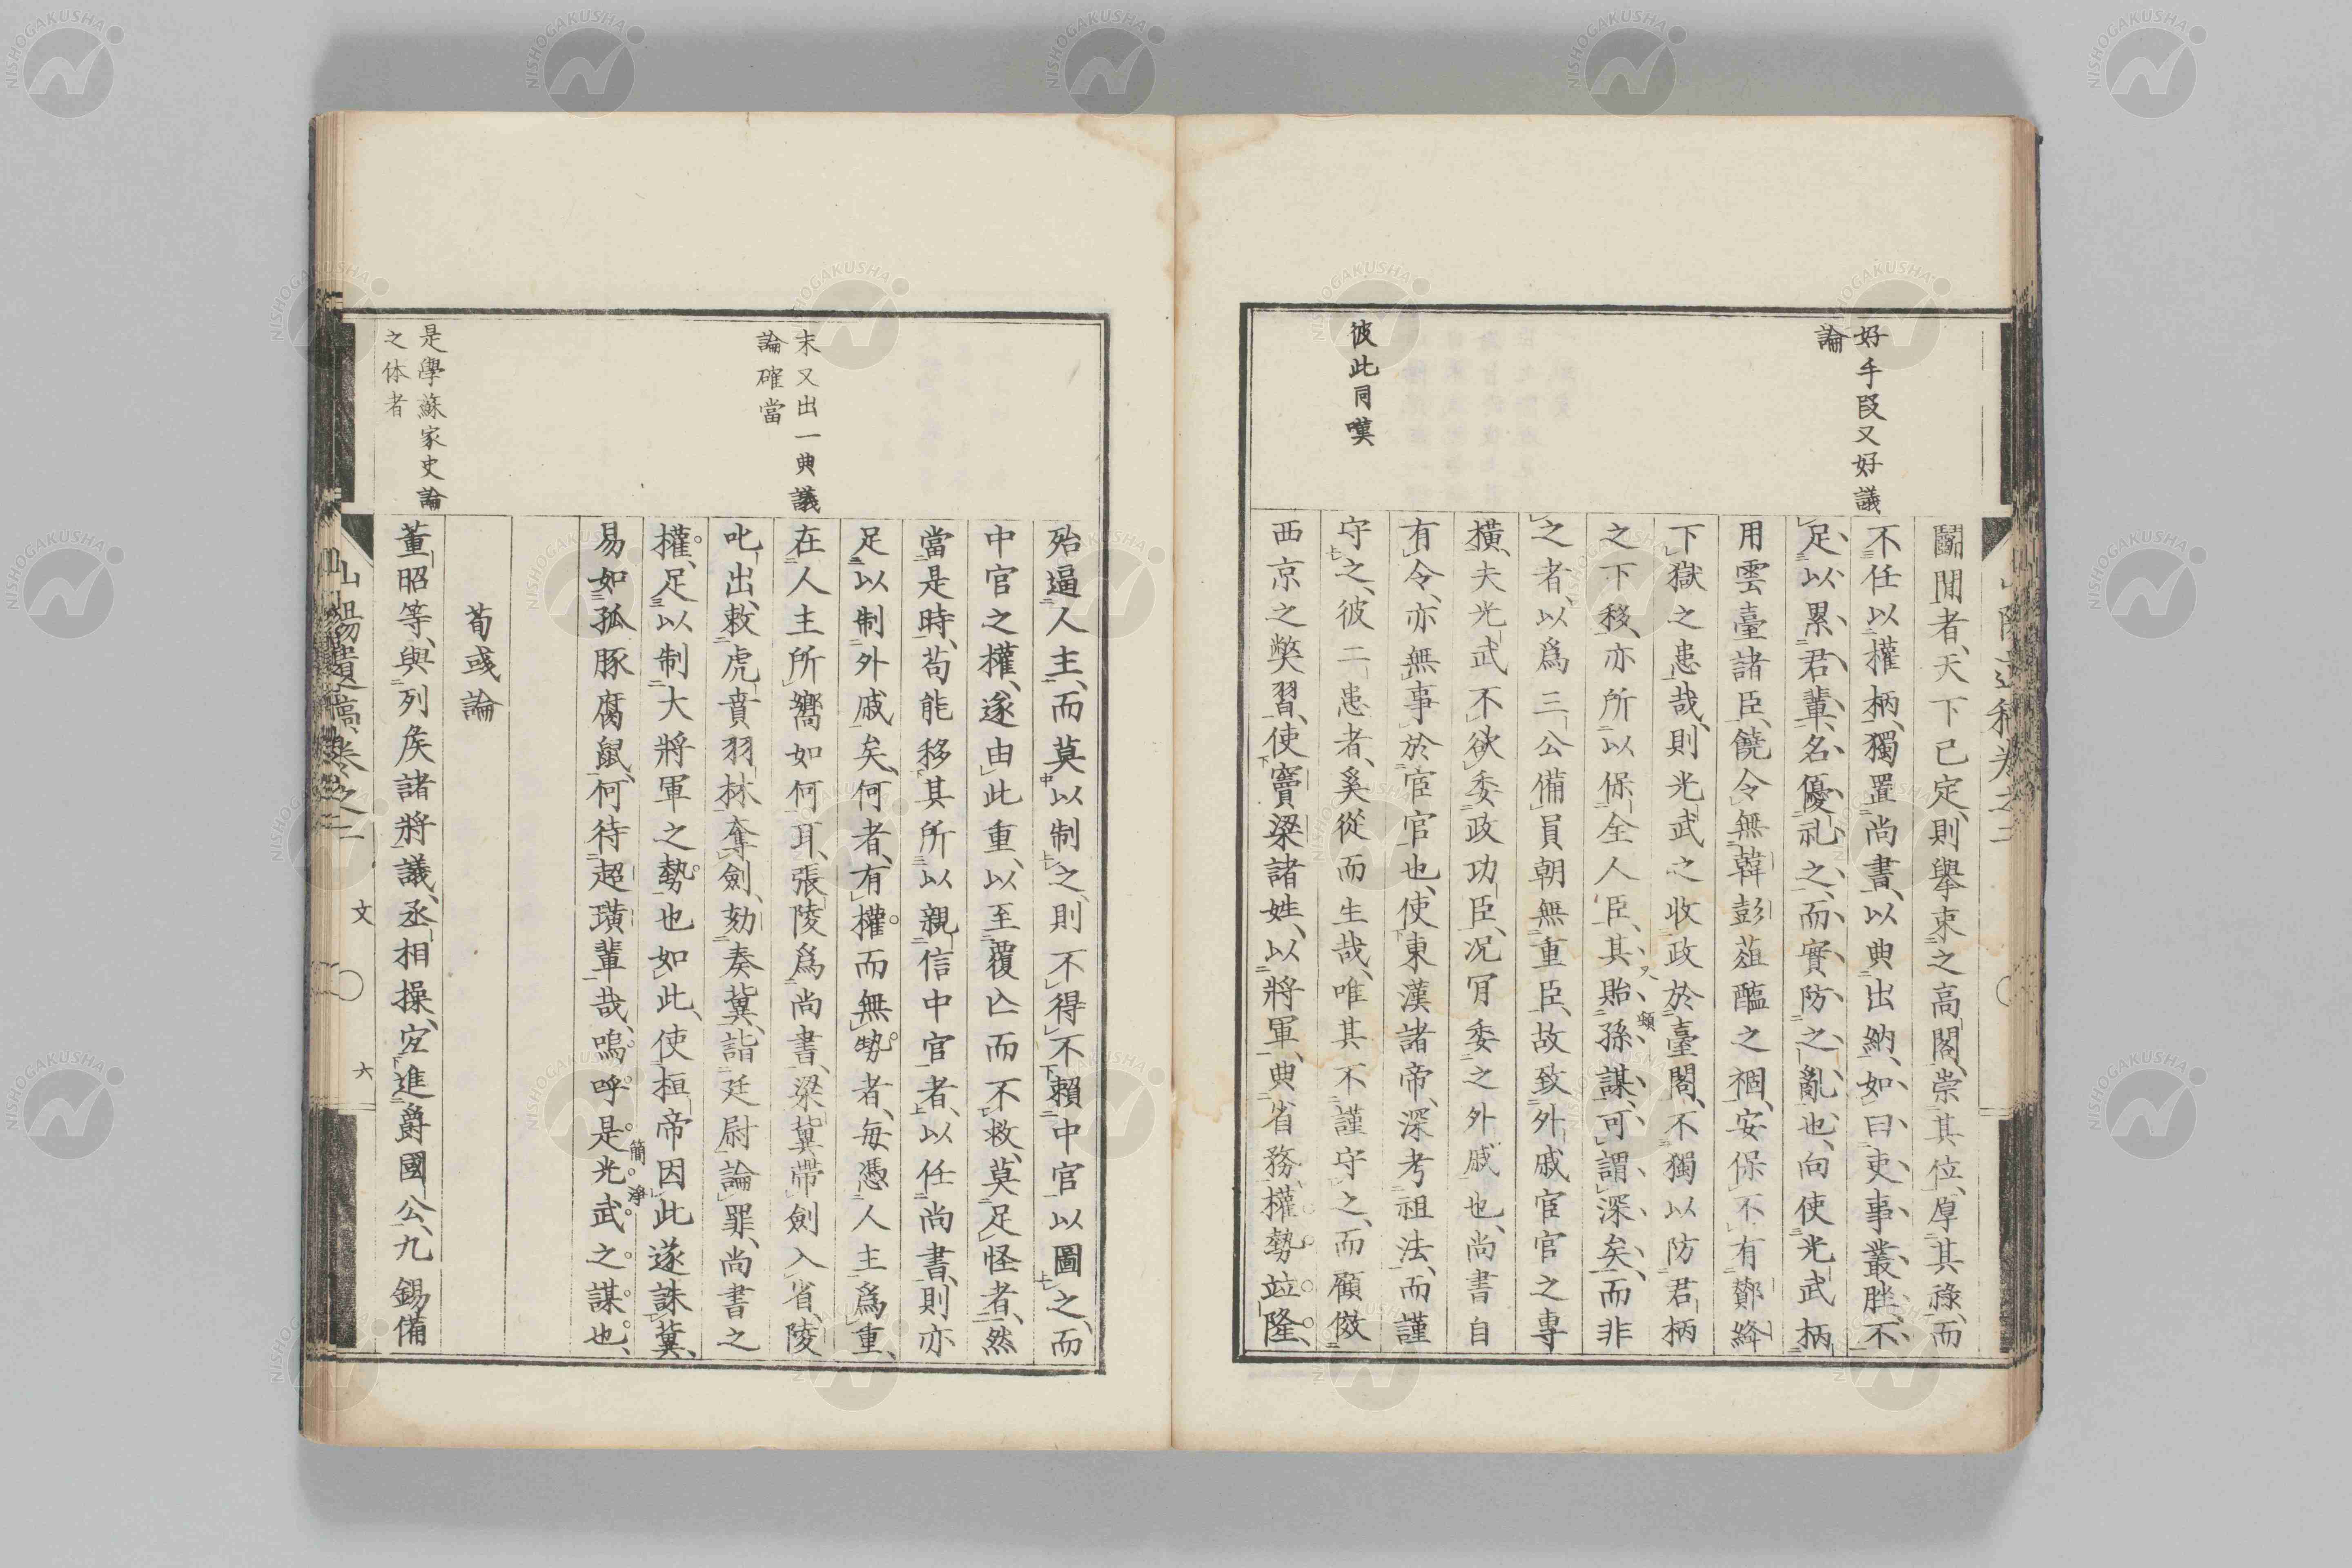 好手段又好議
論
彼此同嘆
鬭閒者、天下已定、則擧束之高閣、崇其位、厚其祿、而
不任以權柄、獨置尚書、以典出納、如曰、吏事叢脞、不
足以累君輩、名優礼之、而實防之亂也、向使光武柄
用雲臺諸臣、饒令無韓彭葅醢之禍、安保不有鄭絳
下獄之患哉、則光武之收政於臺閣、不獨以防君柄
之下移、亦所以保全人臣、其貽孫謀、可謂深矣、而非
之者、以爲三公備員朝無重臣、故致外戚宦官之專
橫、夫光武不欲委政功臣、況肎委之外戚也、尚書自
有令、亦無事於宦官也、使東漢諸帝、深考祖法、而謹
守之、彼二患者、奚從而生哉、唯其不謹守之、而顧傚
西京之獘習、使竇梁諸姓、以將軍、典省務、權勢竝隆、
末又出一典議
論確當
是學蘇家史論
之体者
殆逼人主、而莫以制之、則不得不賴中官以圖之、而
中官之權、遂由此重、以至覆亡而不救、莫足怪者、然
當是時、苟能移其所以親信中官者、以任尚書、則亦
足以制外戚矣、何者、有權而無勢者、每憑人主爲重、
在人主所嚮如何耳、張陵爲尚書、梁冀帶劍入省、陵
叱出、敕虎賁羽林、奪劍、劾奏冀、詣廷尉論罪、尚書之
權、足以制大將軍之勢也如此、使桓帝因此遂誅冀、
易如孤豚腐鼠、何待超璜輩哉、嗚呼是光武之謀也、
簡淨
荀彧論
董昭等、與列矦諸將議、丞相操、宜進爵國公、九錫備
山陽遺稿卷之二 文 六
NISHOGAKUSHA